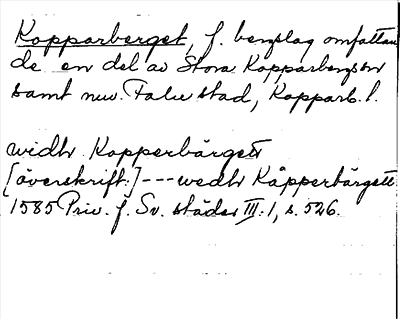 Kopparberget, f. bergslag omfattan
de en del av Stora Kopparbergs sn
samt nuv. Falu stad, Kopparb. l.
widh Kopperbärgett
[överskrift:] --- wedh Kåpperbärgett.
1585 Priv. f. Sv. städer III:1, s. 526.